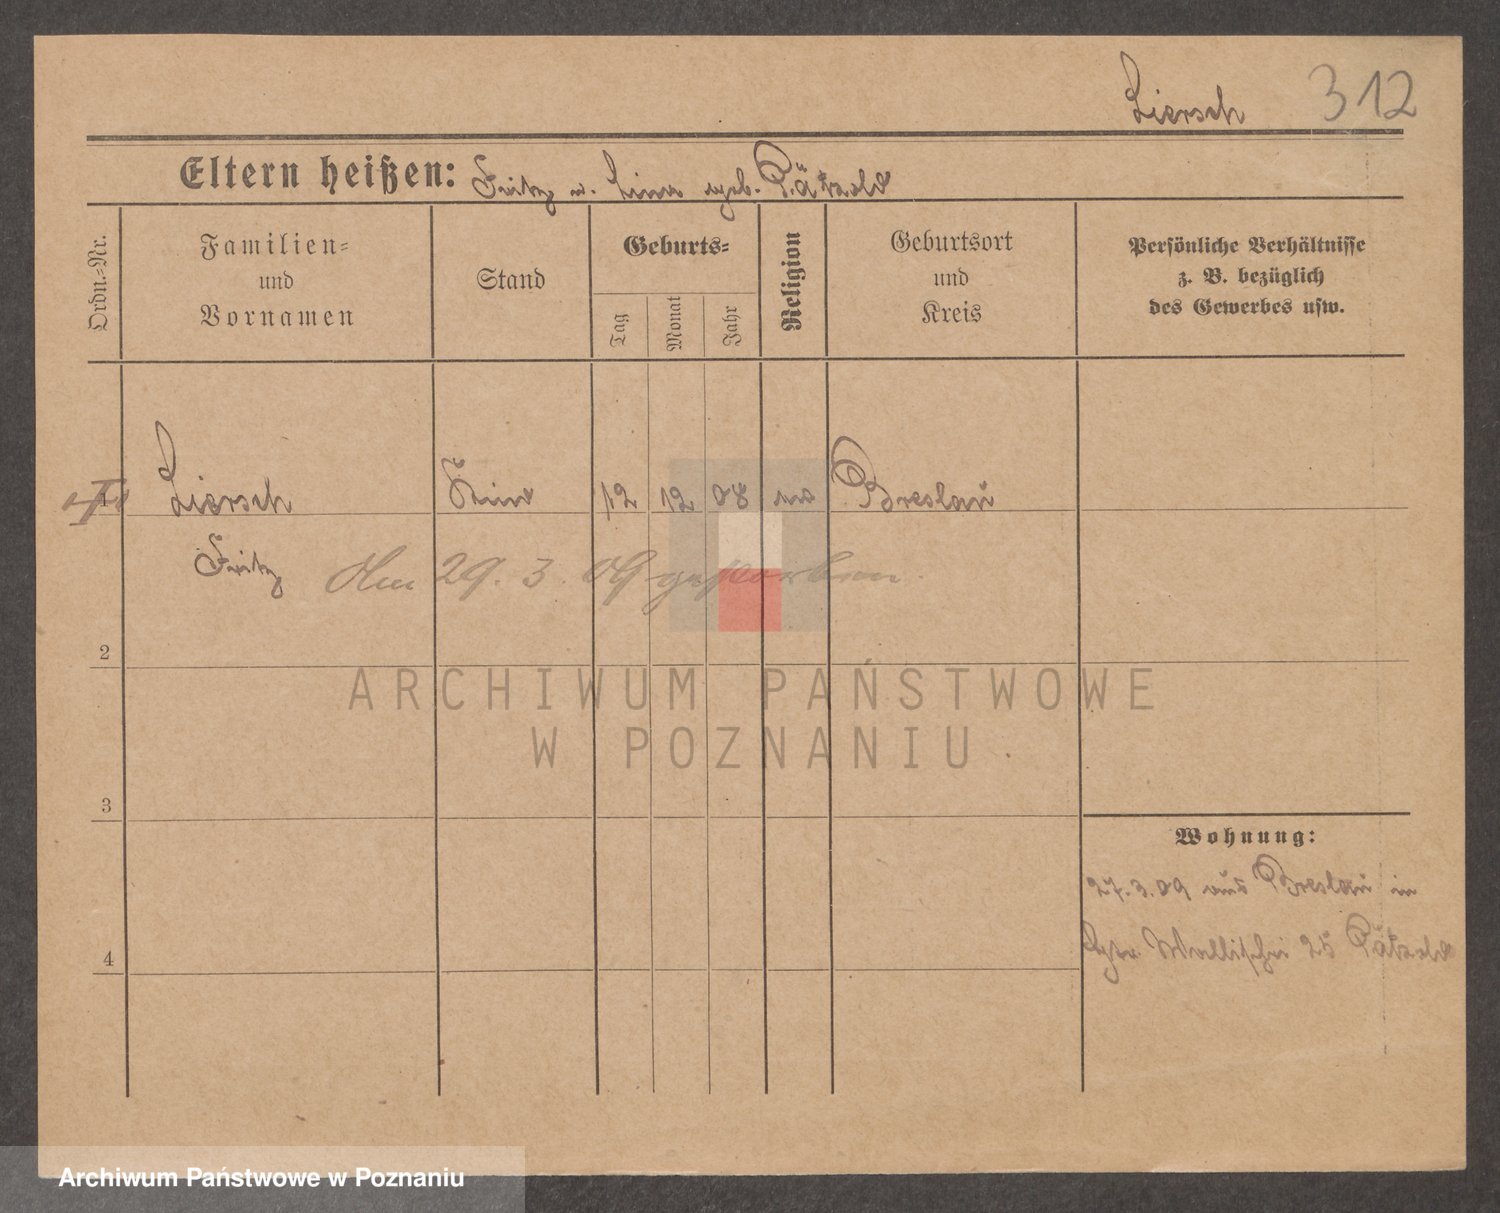 Ziersch 312
Eltern heißen: Fritz u. Lina geb. Pätzold
Ordn.-Nr.
Familien-
und
Vornamen
Stand
Geburts-
Tag
Monat
Jahr
Religion
Geburtsort
und
Kreis
Persönliche Verhältnisse
z. B. bezüglich
des Gewerbes usw.
1 Ziersch Kind 12 12 08 Breslau
Fritz Am 29. 3. 09 gestorben.
2
ARCHIWUM PAŃSTWOWE
W POZNANIU
3
Wohnung:
27.3.09 aus Breslau in
4
Wallischei 25 Pätzold
Archiwum Państwowe w Poznaniu